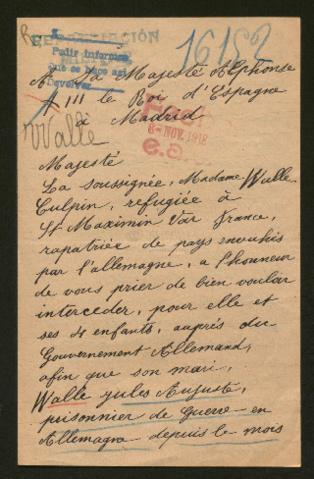 16152
Pedir informes
que se hace así
Devolver
A Sa Majesté Alphonse
XIII le Roi d'Espagne
à Madrid
Walle
8- NOV. 1918
e.a.
Majesté
La soussignée, Madame Walle
Culpin, refugiée à
St Maximin Var France,
rapatriée de pays envahis
par l'allemagne, a l'honneur
de vous prier de bien vouloir
interceder, pour elle et
ses 4 enfants, auprés du
Gouvernement Allemand,
afin que son mari,
Walle jules Auguste,
prisonnier de Guerre en
Allemagne depuis le mois